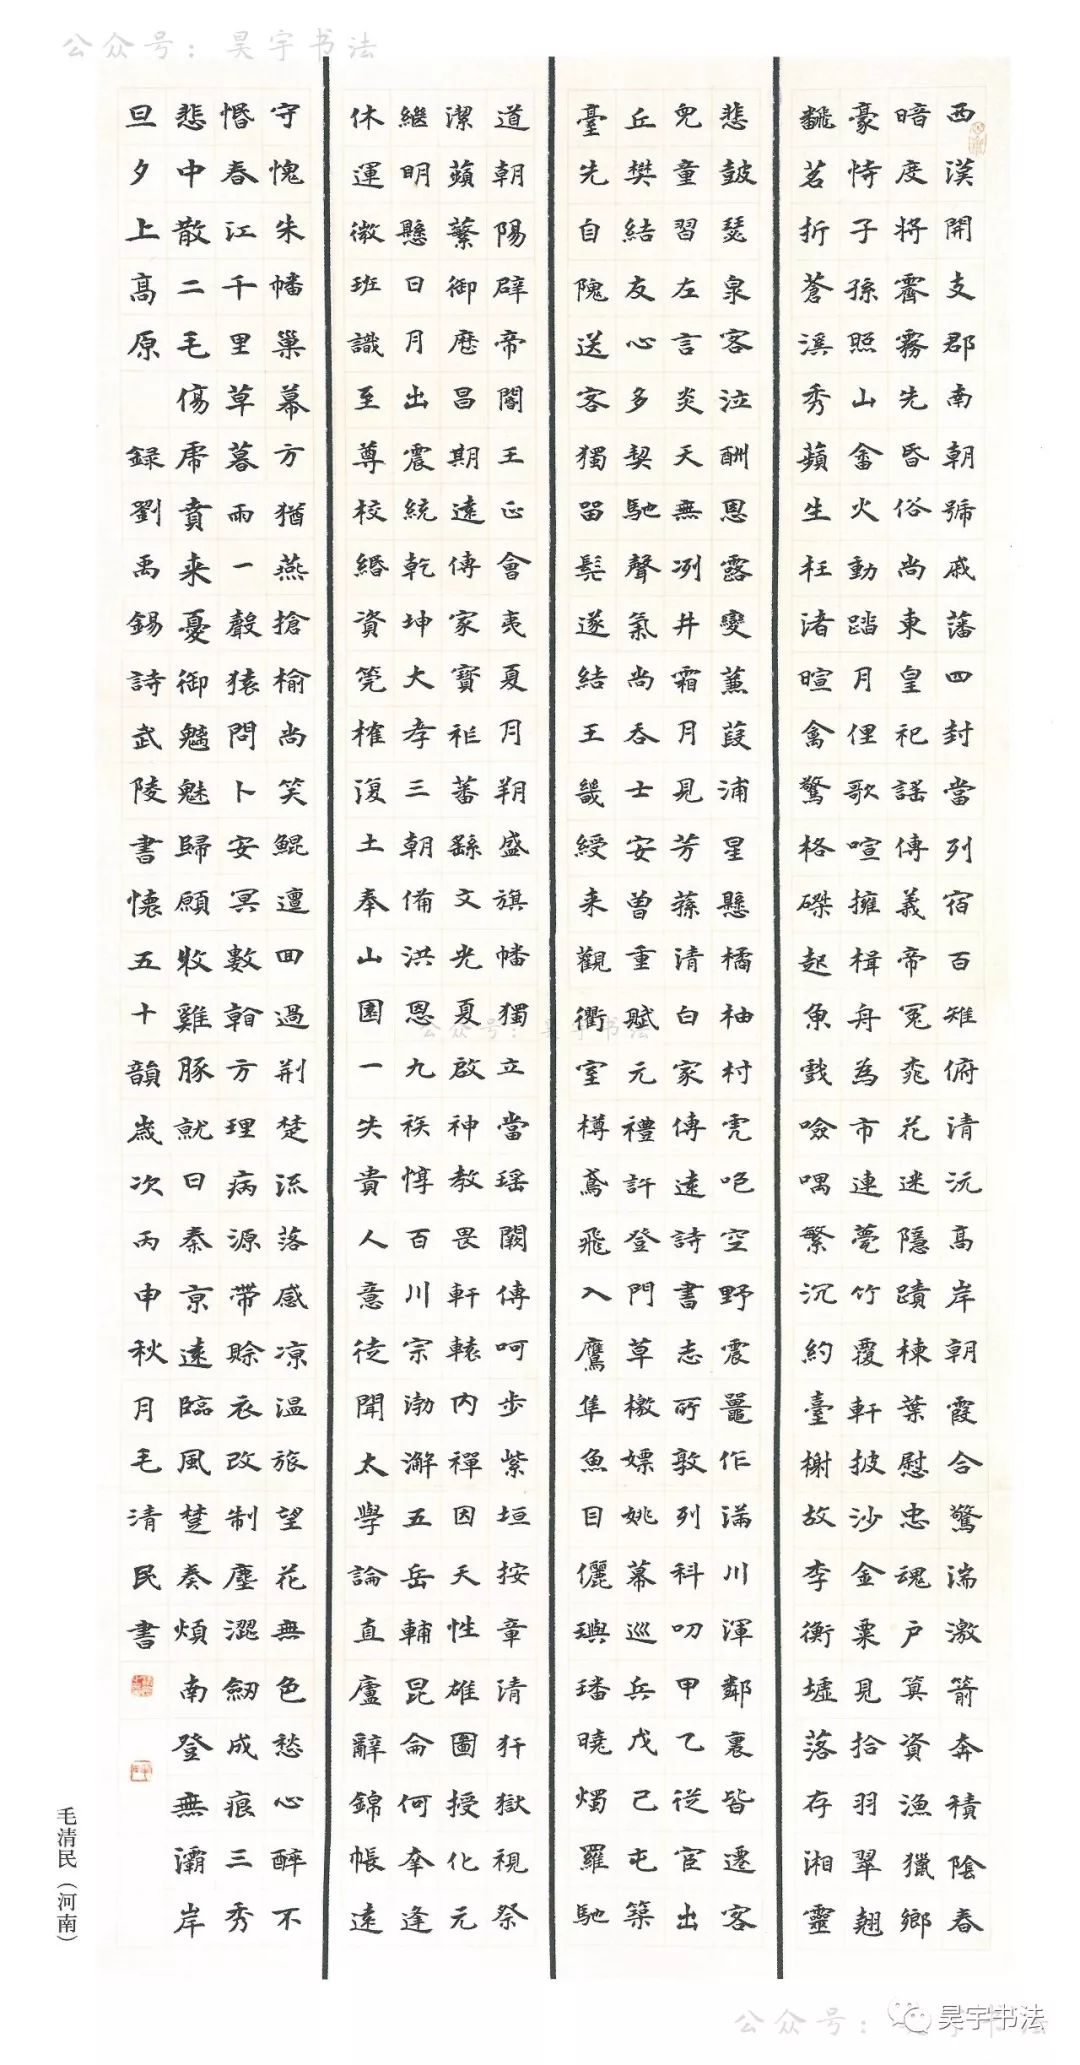 公众号：昊宇书法
西漢開支郡南朝號戚藩四封當列宿百雉俯清沅高岸朝霞合驚湍激箭奔積陰春
暗度將霽霧先昏俗尚東皇祀謡傳義帝冤桃花迷隱蹟楝葉慰忠魂户算資漁獵鄉
豪恃子孫照山畬火動踏月俚歌喧擁楫舟為市連甍竹覆軒披沙金粟見拾羽翠翹
飜茗折蒼溪秀蘋生枉渚暄禽驚格磔起魚戲噞喁繁沉約臺榭故李衡墟落存湘靈
悲鼓瑟泉客泣酬恩露變蒹葭浦星懸橘柚村虎咆空野震鼉作滿川渾鄰裏皆遷客
兒童習左言炎天無冽井霜月見芳蓀清白家傳遠詩書志所敦列科叨甲乙從宦出
丘樊結友心多契馳聲氣尚吞士安曾重賦元禮許登門草檄嫖姚幕巡兵戊己屯築
臺先自隗送客獨留髠遂結王畿綬来觀衢室樽鳶飛入鷹隼魚目儷璵璠曉燭羅馳
道朝陽辟帝閽王正會夷夏月朔盛旗幡獨立當瑶闕傳呵步紫垣按章清犴獄視祭
潔蘋蘩御曆昌期遠傳家寶祚蕃繇文光夏啟神教畏軒轅内禪因天性雄圖授化元
繼明懸日月出震統乾坤大孝三朝備洪恩九族惇百川宗渤澥五岳輔昆侖何幸逢
休運微班識至尊校緡資筦榷復土奉山園一失貴人意徒聞太學論直廬辭錦帳遠
守愧朱幡巢幕方猶燕搶榆尚笑鯤邅回過荆楚流落感凉温旅望花無色愁心醉不
惛春江千里草暮雨一聲猿問卜安冥數看方理病源帶賒衣改制塵澀劒成痕三秀
悲中散二毛傷虎賁来憂御魑魅歸願牧雞豚就日秦京遠臨風楚奏煩南登無灞岸
旦夕上高原 録劉禹錫詩武陵書懷五十韻歲次丙申秋月毛清民書
公众号：昊宇书法
毛清民（河南）
公众号：昊宇书法
昊宇书法